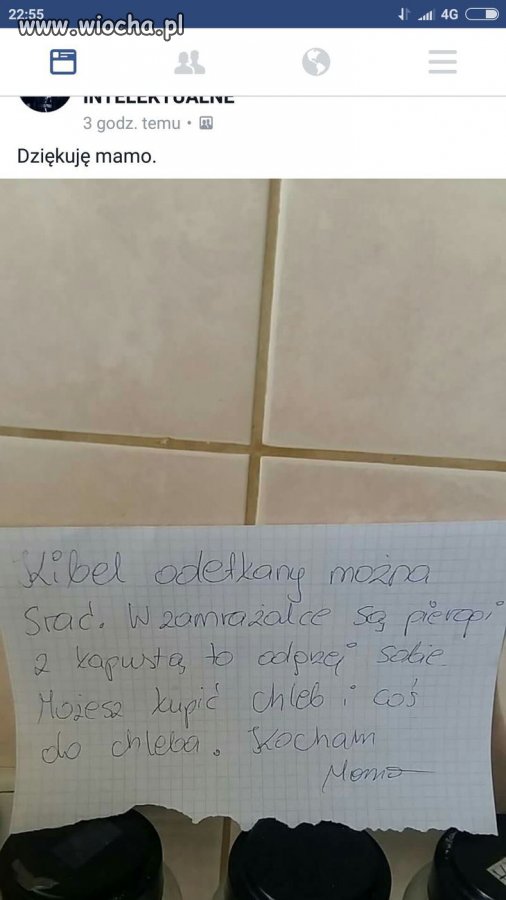 22:55
4G
www.wiocha.pl
INTELEKTUALNE
3 godz. temu
Dziękuję mamo.
Kibel odetkany można
srać. W zamrażalce są pierogi
z kapustą to odgrzej sobie
Możesz kupić chleb i coś
do chleba. Kocham
Mama